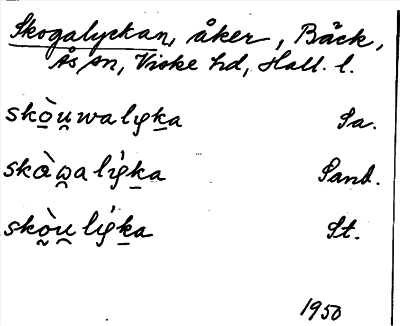 Skogalyckan, åker, Bäck,
Ås sn, Viske hd, Hall. l.
skò̲u̯walyḵa Sa.
skàw̯alýḵa Sand.
skò̰u̯lýḵa St.
1950